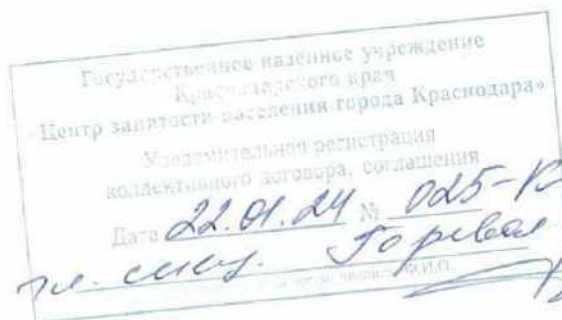 Государственное казенное учреждение
Краснодарского края
«Центр занятости населения города Краснодара»
Уведомительная регистрация
коллективного договора, соглашения
Дата 22.01.24 № 025-К
гл. спец.